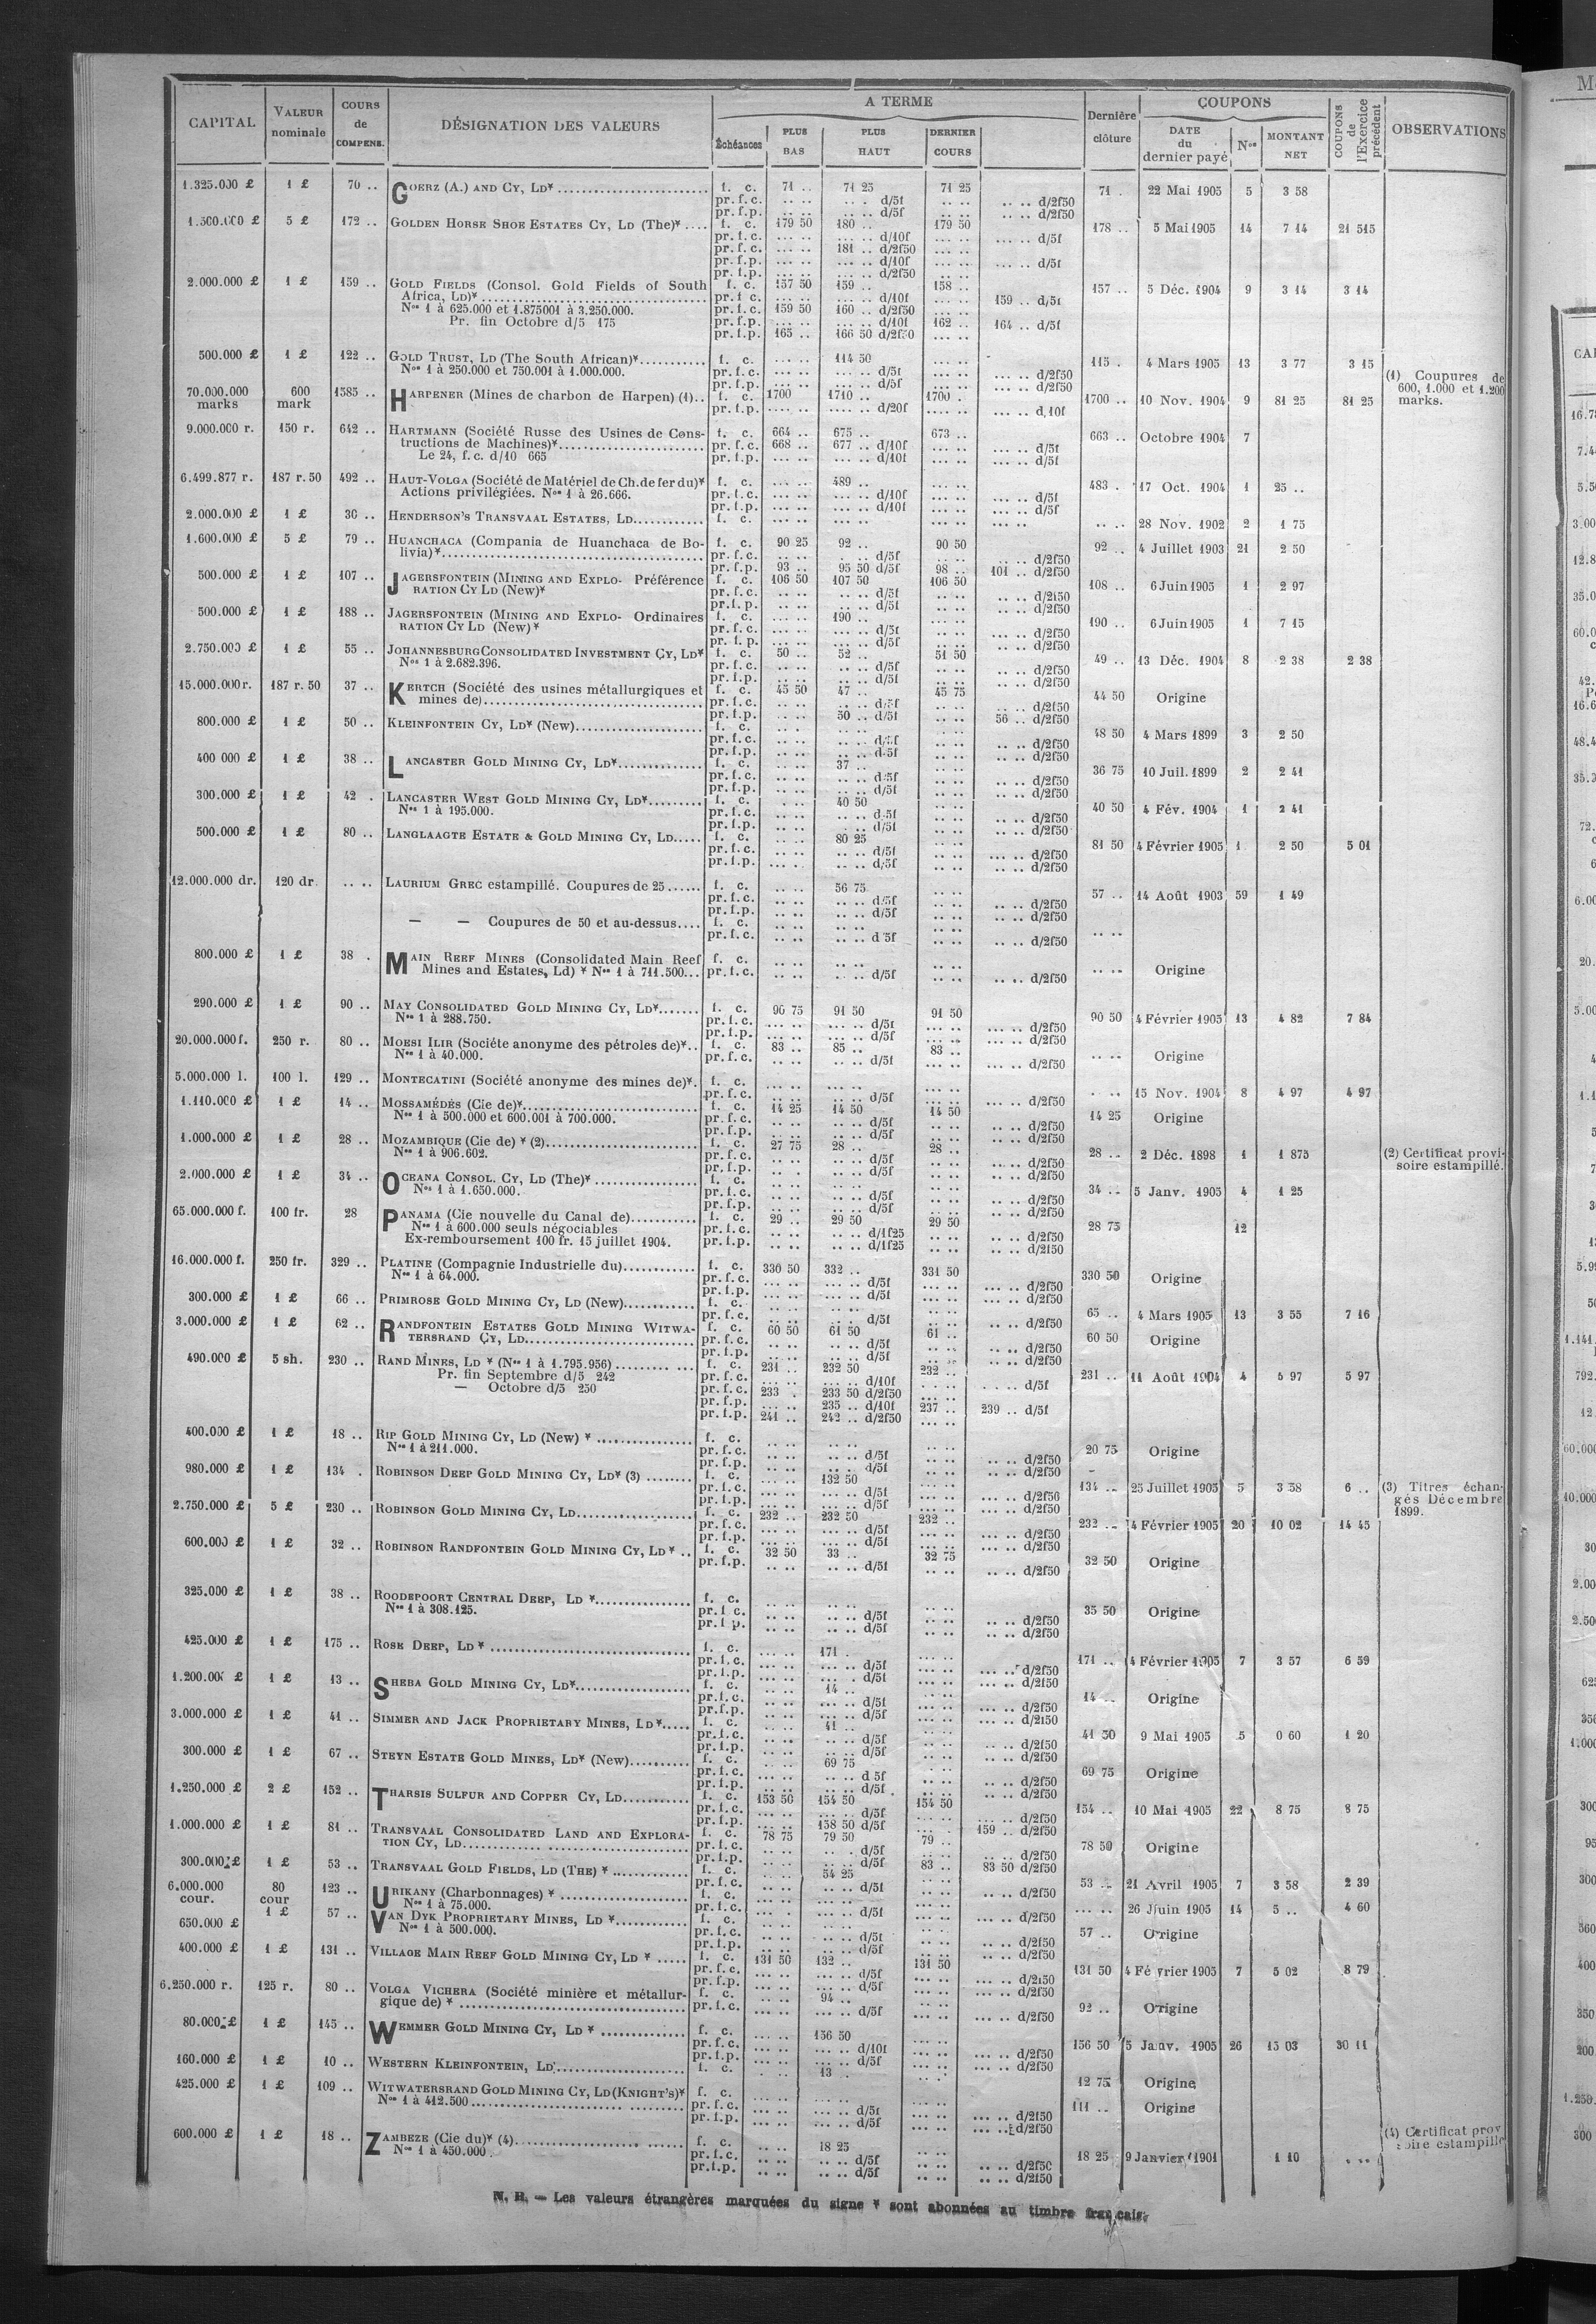 CAPITAL | VALEUR nominale | COURS de COMPENS. | DÉSIGNATION DES VALEURS | A TERME | Dernière clôture | COUPONS | COUPONS de l'Exercice précédent | OBSERVATIONS
Échéances | PLUS BAS | PLUS HAUT | DERNIER COURS | DATE du dernier payé | Nos | MONTANT NET
1.325.000 £ 1 £ 70 .. GOERZ (A.) AND CY, LD* f. c. 71 .. 71 25 71 25 71 . 22 Mai 1905 5 3 58
pr. f. c. .. .. .. . d/5f .. .. .. .. d/2f50
pr. f. p. .. .. .. .. d/5f .. .. .. .. d/2f50
1.500.000 £ 5 £ 172 .. GOLDEN HORSE SHOE ESTATES CY, LD (The)* f. c. 179 50 180 .. 179 50 178 .. 5 Mai 1905 14 7 14 21 515
pr. f. c. ... .. ... .. d/10f ... .. ... .. d/5f
pr. f. c. ... .. 181 .. d/2f50
pr. f. p. ... .. ... .. d/10f ... .. ... .. d/5f
pr. f. p. ... .. ... .. d/2f50
2.000.000 £ 1 £ 159 .. GOLD FIELDS (Consol. Gold Fields of South f. c. 157 50 159 .. 158 .. 157 .. 5 Déc. 1904 9 3 14 3 14
Africa, LD)* pr. f. c. ... .. ... .. d/10f 159 .. d/5f
Nos 1 à 625.000 et 1.875001 à 3.250.000. pr. f. c. 159 50 160 .. d/2f50
Pr. fin Octobre d/5 175 pr. f. p. ... .. ... .. d/10f 162 .. 164 .. d/5f
pr. f. p. 165 .. 166 50 d/2f50 ... ..
500.000 £ 1 £ 122 .. GOLD TRUST, LD (The South African)* f. c. ... .. 114 50 ... .. 115 . 4 Mars 1905 13 3 77 3 15
Nos 1 à 250.000 et 750.001 à 1.000.000. pr. f. c. ... .. ... .. d/5f ... .. ... .. d/2f50
pr. f. p. ... .. ... .. d/5f ... .. ... .. d/2f50
(1) Coupures de 600, 1.000 et 1.200 marks.
70.000.000 marks 600 mark 1585 .. HARPENER (Mines de charbon de Harpen) (1).. f. c. 1700 1710 .. 1700 . 1700 .. 10 Nov. 1904 9 81 25 81 25
pr. f. p. .... .. .... .. d/20f .... .. .... .. d/10f
9.000.000 r. 150 r. 642 .. HARTMANN (Société Russe des Usines de Cons- f. c. 664 .. 675 .. 673 .. 663 .. Octobre 1904 7
tructions de Machines)* pr. f. c. 668 .. 677 .. d/10f ... .. ... .. d/5f
Le 24, f. c. d/10 665 pr. f. p. ... .. ... .. d/10f ... .. ... .. d/5f
6.499.877 r. 187 r. 50 492 .. HAUT-VOLGA (Société de Matériel de Ch. de fer du)* f. c. ... .. 489 .. ... .. 483 . 17 Oct. 1904 1 25 ..
Actions privilégiées. Nos 1 à 26.666. pr. f. c. ... .. ... .. d/10f ... .. ... .. d/5f
pr. f. p. ... .. ... .. d/10f ... .. ... .. d/5f
2.000.000 £ 1 £ 30 .. HENDERSON'S TRANSVAAL ESTATES, LD f. c. ... .. ... .. ... .. .. .. 28 Nov. 1902 2 1 75
1.600.000 £ 5 £ 79 .. HUANCHACA (Compania de Huanchaca de Bo- f. c. 90 25 92 .. 90 50 92 .. 4 Juillet 1903 21 2 50
livia)* pr. f. c. .. .. .. .. d/5f .. .. .. .. d/2f50
pr. f. p. 93 .. 95 50 d/5f 98 .. 101 .. d/2f50
500.000 £ 1 £ 107 .. JAGERSFONTEIN (MINING AND EXPLO- Préférence f. c. 106 50 107 50 106 50 108 .. 6 Juin 1905 1 2 97
RATION CY LD (New)* pr. f. c. ... .. ... .. d/5f ... .. .. .. d/2f50
pr. f. p. ... .. ... .. d/5f ... .. .. .. d/2f50
500.000 £ 1 £ 188 .. JAGERSFONTEIN (MINING AND EXPLO- Ordinaires f. c. ... .. 190 .. ... .. 190 .. 6 Juin 1905 1 7 15
RATION CY LD (New)* pr. f. c. ... .. ... .. d/5f ... .. ... .. d/2f50
pr. f. p. ... .. ... .. d/5f ... .. ... .. d/2f50
2.750.000 £ 1 £ 55 .. JOHANNESBURG CONSOLIDATED INVESTMENT CY, LD* f. c. 50 .. 52 .. 51 50 49 .. 13 Déc. 1904 8 2 38 2 38
Nos 1 à 2.682.396. pr. f. c. .. .. .. .. d/5f .. .. .. .. d/2f50
pr. f. p. .. .. .. .. d/5f .. .. .. .. d/2f50
15.000.000 r. 187 r. 50 37 .. KERTCH (Société des usines métallurgiques et f. c. 45 50 47 .. 45 75 44 50 Origine
mines de) pr. f. c. .. .. .. .. d/5f .. .. .. .. d/2f50
pr. f. p. .. .. 50 .. d/5f .. .. 56 .. d/2f50
800.000 £ 1 £ 50 .. KLEINFONTEIN CY, LD* (New) f. c. .. .. .. .. .. .. 48 50 4 Mars 1899 3 2 50
pr. f. c. .. .. .. .. d/5f .. .. .. .. d/2f50
pr. f. p. .. .. .. .. d/5f .. .. .. .. d/2f50
400 000 £ 1 £ 38 .. LANCASTER GOLD MINING CY, LD* f. c. .. .. 37 .. .. .. 36 75 10 Juil. 1899 2 2 41
pr. f. c. .. .. .. .. d/5f .. .. .. .. d/2f50
pr. f. p. .. .. .. .. d/5f .. .. .. .. d/2f50
300.000 £ 1 £ 42 . LANCASTER WEST GOLD MINING CY, LD* f. c. .. .. 40 50 .. .. 40 50 4 Fév. 1904 1 2 41
Nos 1 à 195.000. pr. f. c. .. .. .. .. d/5f .. .. .. .. d/2f50
pr. f. p. .. .. .. .. d/5f .. .. .. .. d/2f50
500.000 £ 1 £ 80 .. LANGLAAGTE ESTATE & GOLD MINING CY, LD f. c. .. .. 80 25 .. .. 81 50 4 Février 1905 1 2 50 5 01
pr. f. c. .. .. .. .. d/5f .. .. ... .. d/2f50
pr. f. p. ... .. .. .. d/5f .. .. .. .. d/2f50
12.000.000 dr. 120 dr. .. .. LAURIUM GREC estampillé. Coupures de 25 f. c. .. .. 56 75 .. .. 57 .. 14 Août 1903 59 1 49
pr. f. c. .. .. .. .. d/5f .. .. .. .. d/2f50
pr. f. p. .. .. .. .. d/5f .. .. .. .. d/2f50
— — Coupures de 50 et au-dessus f. c. .. .. .. .. .. .. .. ..
pr. f. c. .. .. .. .. d/5f .. .. .. .. d/2f50
800.000 £ 1 £ 38 . MAIN REEF MINES (Consolidated Main Reef f. c. .. .. .. .. .. .. .. .. Origine
Mines and Estates, Ld) * Nos 1 à 711.500 pr. f. c. .. .. .. .. d/5f .. .. .. .. d/2f50
290.000 £ 1 £ 90 .. MAY CONSOLIDATED GOLD MINING CY, LD* f. c. 90 75 91 50 91 50 90 50 4 Février 1905 13 4 82 7 84
Nos 1 à 288.750. pr. f. c. ... .. ... .. d/5f ... .. ... .. d/2f50
pr. f. p. ... .. ... .. d/5f ... .. ... .. d/2f50
20.000.000 f. 250 r. 80 .. MOESI ILIR (Sociéte anonyme des pétroles de)* f. c. 83 .. 85 .. 83 .. .. .. Origine
Nos 1 à 40.000. pr. f. c. .. .. .. .. d/5f .. .. ... .. d/2f50
5.000.000 l. 100 l. 129 .. MONTECATINI (Société anonyme des mines de)*. f. c. ... .. ... .. ... .. .. .. 15 Nov. 1904 8 4 97 4 97
pr. f. c. ... .. ... .. d/5f ... .. ... .. d/2f50
1.110.000 £ 1 £ 14 .. MOSSAMÉDÈS (Cie de)* f. c. 14 25 14 50 14 50 14 25 Origine
Nos 1 à 500.000 et 600.001 à 700.000. pr. f. c. .. .. .. .. d/5f .. .. .. .. d/2f50
pr. f. p. .. .. .. .. d/5f .. .. .. .. d/2f50
1.000.000 £ 1 £ 28 .. MOZAMBIQUE (Cie de) * (2) f. c. 27 75 28 .. 28 .. 28 .. 2 Déc. 1898 1 1 875
Nos 1 à 906.602. pr. f. c. .. .. .. .. d/5f .. .. .. .. d/2f50
pr. f. p. .. .. .. .. d/5f .. .. .. .. d/2f50
(2) Certificat provi-
soire estampillé.
2.000.000 £ 1 £ 34 .. OCEANA CONSOL. CY, LD (The)* f. c. .. .. .. .. .. .. 34 .. 5 Janv. 1905 4 1 25
Nos 1 à 1.650.000. pr. f. c. .. .. .. .. d/5f .. .. .. .. d/2f50
pr. f. p. .. .. .. .. d/5f .. .. .. .. d/2f50
65.000.000 f. 100 fr. 28 PANAMA (Cie nouvelle du Canal de) f. c. 29 .. 29 50 29 50 28 75 12
Nos 1 à 600.000 seuls négociables pr. f. c. .. .. .. .. d/1f25 .. .. .. .. d/2f50
Ex-remboursement 100 fr. 15 juillet 1904. pr. f. p. .. .. .. .. d/1f25 .. .. .. .. d/2f50
16.000.000 f. 250 fr. 329 .. PLATINE (Compagnie Industrielle du) f. c. 330 50 332 .. 331 50 330 50 Origine
Nos 1 à 64.000. pr. f. c. ... .. ... .. d/5f ... .. ... .. d/2f50
pr. f. p. ... .. ... .. d/5f ... .. ... .. d/2f50
300.000 £ 1 £ 66 .. PRIMROSE GOLD MINING CY, LD (New) f. c. .. .. .. .. .. .. 65 .. 4 Mars 1905 13 3 55 7 16
pr. f. c. .. .. .. .. d/5f .. .. .. .. d/2f50
3.000.000 £ 1 £ 62 .. RANDFONTEIN ESTATES GOLD MINING WITWA- f. c. 60 50 61 50 61 .. 60 50 Origine
TERSRAND CY, LD pr. f. c. .. .. .. .. d/5f .. .. .. .. d/2f50
pr. f. p. .. .. .. .. d/5f .. .. .. .. d/2f50
490.000 £ 5 sh. 230 .. RAND MINES, LD * (Nos 1 à 1.795.956) f. c. 231 .. 232 50 232 .. 231 .. 11 Août 1904 4 5 97 5 97
Pr. fin Septembre d/5 242 pr. f. c. ... .. ... .. d/10f ... .. .. .. d/5f
— Octobre d/5 250 pr. f. c. 233 . 233 50 d/2f50 ... ..
pr. f. p. ... .. 235 .. d/10f 237 .. 239 .. d/5f
pr. f. p. 241 .. 242 .. d/2f50 ... ..
400.000 £ 1 £ 18 .. RIP GOLD MINING CY, LD (New) * f. c. .. .. .. .. .. .. 20 75 Origine
Nos 1 à 211.000. pr. f. c. .. .. .. .. d/5f .. .. .. .. d/2f50
pr. f. p. .. .. .. .. d/5f .. .. .. .. d/2f50
980.000 £ 1 £ 134 . ROBINSON DEEP GOLD MINING CY, LD* (3) f. c. ... .. 132 50 ... .. 134 .. 25 Juillet 1905 5 3 58 6 ..
pr. f. c. ... .. ... .. d/5f ... .. ... .. d/2f50
pr. f. p. ... .. ... .. d/5f ... .. ... .. d/2f50
(3) Titres échan-
gés Décembre
1899.
2.750.000 £ 5 £ 230 .. ROBINSON GOLD MINING CY, LD f. c. 232 .. 232 50 232 .. 232 .. 4 Février 1905 20 10 02 14 45
pr. f. c. ... .. ... .. d/5f ... .. ... .. d/2f50
pr. f. p. ... .. ... .. d/5f ... .. ... .. d/2f50
600.000 £ 1 £ 32 .. ROBINSON RANDFONTEIN GOLD MINING CY, LD * .. f. c. 32 50 33 .. 32 75 32 50 Origine
pr. f. p. .. .. .. .. d/5f .. .. .. .. d/2f50
325.000 £ 1 £ 38 .. ROODEPOORT CENTRAL DEEP, LD * f. c. .. .. .. .. .. .. 35 50 Origine
Nos 1 à 308.125. pr. f. c. .. .. .. .. d/5f .. .. .. .. d/2f50
pr. f. p. .. .. .. .. d/5f .. .. .. .. d/2f50
425.000 £ 1 £ 175 .. ROSE DEEP, LD * f. c. ... .. 171 . ... .. 171 .. 4 Février 1905 7 3 57 6 59
pr. f. c. ... .. ... .. d/5f ... .. ... .. d/2f50
pr. f. p. ... .. ... .. d/5f ... .. ... .. d/2f50
1.200.000 £ 1 £ 13 .. SHEBA GOLD MINING CY, LD* f. c. .. .. 14 .. .. .. 14 .. Origine
pr. f. c. ... .. ... .. d/5f ... .. ... .. d/2f50
pr. f. p. ... .. ... .. d/5f ... .. ... .. d/2f50
3.000.000 £ 1 £ 41 .. SIMMER AND JACK PROPRIETARY MINES, LD* f. c. .. .. 41 .. .. .. 41 50 9 Mai 1905 5 0 60 1 20
pr. f. c. .. .. .. .. d/5f .. .. .. .. d/2f50
pr. f. p. .. .. .. .. d/5f .. .. .. .. d/2f50
300.000 £ 1 £ 67 .. STEYN ESTATE GOLD MINES, LD* (New) f. c. .. .. 69 75 .. .. 69 75 Origine
pr. f. c. .. .. .. .. d 5f .. .. .. .. d/2f50
pr. f. p. .. .. .. .. d/5f .. .. .. .. d/2f50
1.250.000 £ 2 £ 152 .. THARSIS SULFUR AND COPPER CY, LD f. c. 153 50 154 50 154 50 154 .. 10 Mai 1905 22 8 75 8 75
pr. f. c. ... .. ... .. d/5f ... .. ... .. d/2f50
pr. f. p. ... .. 158 50 d/5f ... .. 159 .. d/2f50
1.000.000 £ 1 £ 81 .. TRANSVAAL CONSOLIDATED LAND AND EXPLORA- f. c. 78 75 79 50 79 .. 78 50 Origine
TION CY, LD pr. f. c. .. .. .. . d/5f .. .. .. .. d/2f50
pr. f. p. .. .. .. .. d/5f 83 .. 83 50 d/2f50
300.000 £ 1 £ 53 .. TRANSVAAL GOLD FIELDS, LD (THE) * f. c. .. .. 54 25 .. .. 53 .. 21 Avril 1905 7 3 58 2 39
pr. f. c. .. .. .. .. d/5f .. .. .. .. d/2f50
6.000.000 cour. 80 cour 123 .. URIKANY (Charbonnages) * f. c. ... .. ... .. ... .. ... .. 26 Juin 1905 14 5 .. 4 60
Nos 1 à 75.000. pr. f. c. ... . ... .. d/5f ... .. ... .. d/2f50
650.000 £ 1 £ 57 .. VAN DYK PROPRIETARY MINES, LD * f. c. .. .. .. .. .. .. 57 .. Origine
Nos 1 à 500.000. pr. f. c. .. .. .. .. d/5f .. .. .. .. d/2f50
pr. f. p. .. .. .. .. d/5f .. .. .. .. d/2f50
400.000 £ 1 £ 131 .. VILLAGE MAIN REEF GOLD MINING CY, LD * f. c. 131 50 132 .. 131 50 131 50 4 Février 1905 7 5 02 8 79
pr. f. c. ... .. ... .. d/5f ... .. ... .. d/2f50
pr. f. p. ... .. ... .. d/5f ... .. ... .. d/2f50
6.250.000 r. 125 r. 80 .. VOLGA VICHERA (Société minière et métallur- f. c. ... .. 94 .. ... .. 92 .. Origine
gique de) * pr. f. c. ... .. ... .. d/5f ... .. ... .. d/2f50
80.000 £ 1 £ 145 .. WEMMER GOLD MINING CY, LD * f. c. ... .. 156 50 ... .. 156 50 5 Janv. 1905 26 15 03 30 11
pr. f. c. ... .. ... .. d/10f ... .. ... .. d/2f50
pr. f. p. ... .. ... .. d/5f ... .. ... .. d/2f50
160.000 £ 1 £ 10 .. WESTERN KLEINFONTEIN, LD f. c. .. .. 13 .. .. .. 12 75 Origine
425.000 £ 1 £ 109 .. WITWATERSRAND GOLD MINING CY, LD (KNIGHT'S)* f. c. ... .. ... .. ... .. 111 .. Origine
Nos 1 à 412.500 pr. f. c. ... .. ... .. d/5f ... .. ... .. d/2f50
pr. f. p. ... .. ... .. d/5f ... .. ... .. d/2f50
600.000 £ 1 £ 18 .. ZAMBEZE (Cie du)* (4) f. c. .. .. 18 25 .. .. 18 25 9 Janvier 1901 1 10 .. ..
Nos 1 à 450.000 pr. f. c. .. .. .. .. d/5f .. .. .. .. d/2f50
pr. f. p. .. .. .. .. d/5f .. .. .. .. d/2f50
(4) Certificat prov
soire estampillé
N. B. — Les valeurs étrangères marquées du signe * sont abonnées au timbre français.